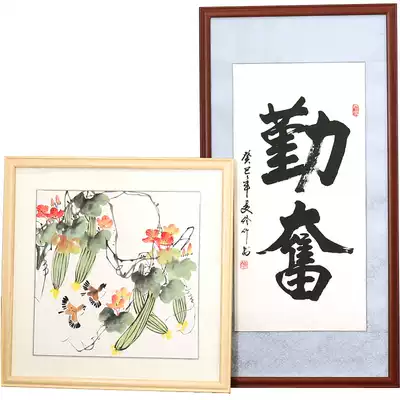 勤奮
癸巳年